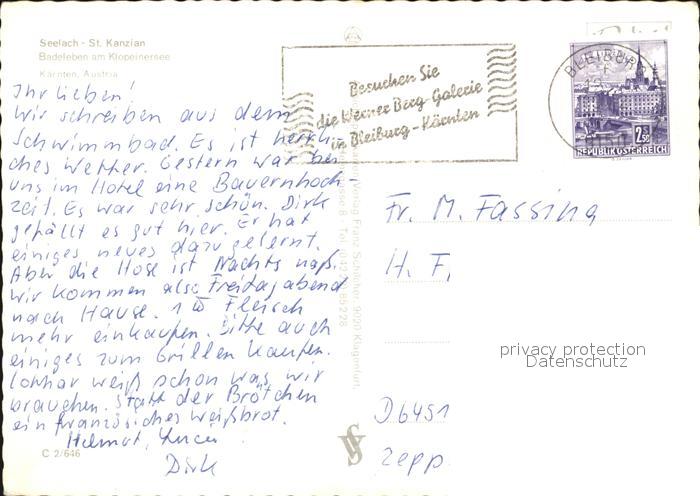 Seelach - St. Kanzian
Badeleben am Klopeinersee
Kärnten, Austria
Ihr lieben!
Wir schreiben aus dem
Schwimmbad. Es ist herrli-
ches Wetter. Gestern war bei
uns im Hotel eine Bauernhoch-
zeit. Es war sehr schön. Dirk
gefällt es gut hier. Er hat
einiges neues dazugelernt.
Aber die Hose ist Nachts naß.
Wir kommen also Freitagabend
nach Hause. 1 Fleisch
mehr einkaufen. Bitte auch
einiges zum Grillen kaufen.
Lothar weiß schon was wir
brauchen. Statt der Brötchen
ein französiches Weißbrot.
Helmut,
Dirk
C 2/646
Verlag Franz Schilcher, 9020 Klagenfurt,
Besuchen Sie
die Werner Berg-Galerie
in Bleiburg-Kärnten
BLEIBURG
2.50
REPUBLIK ÖSTERREICH
Fr. M. Fassing
H. F.
privacy protection
Datenschutz
D6451
zepp.